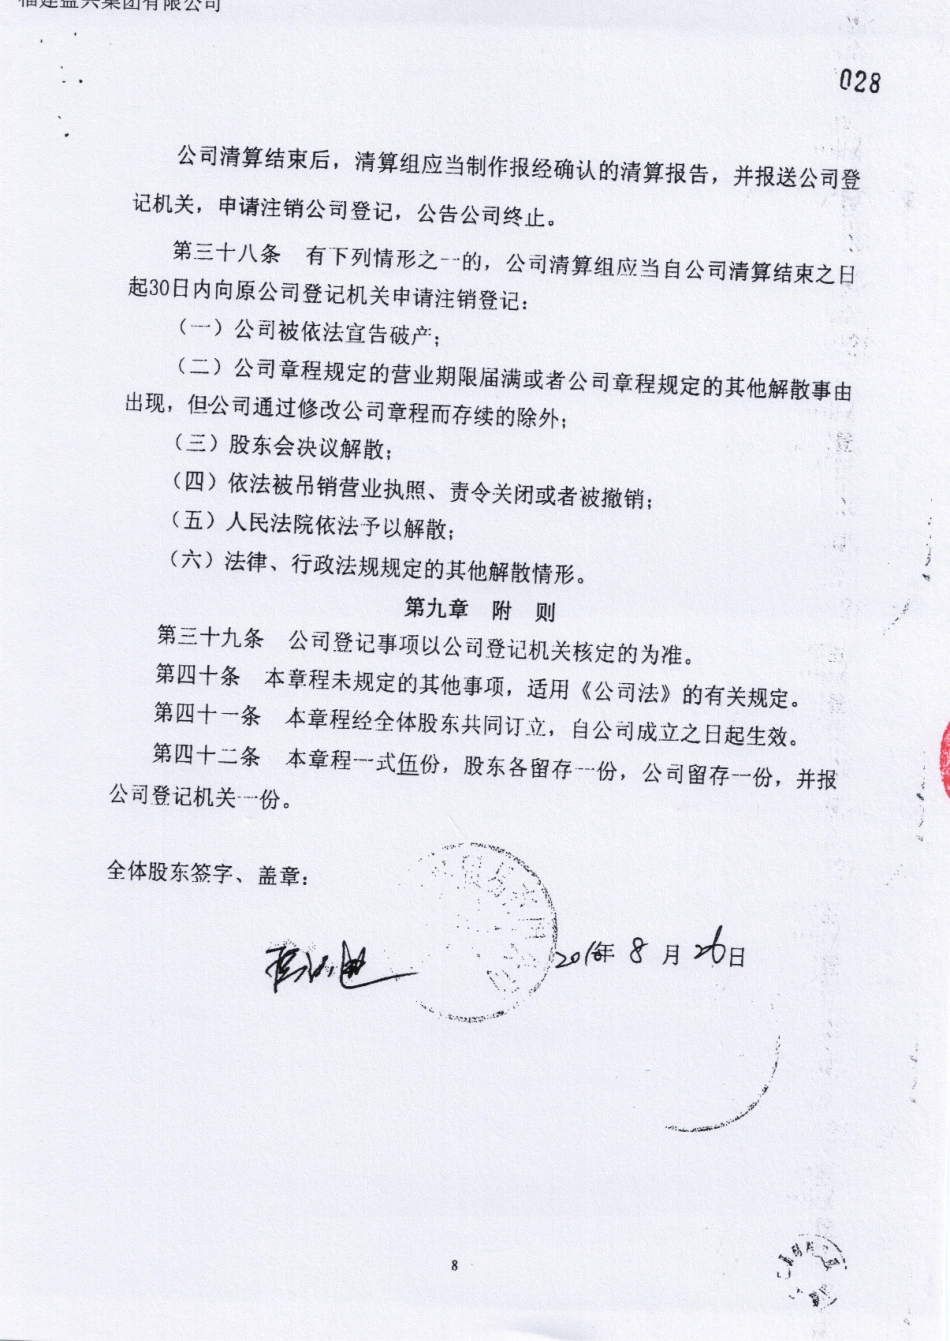 福建盛兴集团有限公司
028
公司清算结束后，清算组应当制作报经确认的清算报告，并报送公司登
记机关，申请注销公司登记，公告公司终止。
第三十八条　有下列情形之一的，公司清算组应当自公司清算结束之日
起30日内向原公司登记机关申请注销登记：
（一）公司被依法宣告破产；
（二）公司章程规定的营业期限届满或者公司章程规定的其他解散事由
出现，但公司通过修改公司章程而存续的除外；
（三）股东会决议解散；
（四）依法被吊销营业执照、责令关闭或者被撤销；
（五）人民法院依法予以解散；
（六）法律、行政法规规定的其他解散情形。
第九章　附　则
第三十九条　公司登记事项以公司登记机关核定的为准。
第四十条　本章程未规定的其他事项，适用《公司法》的有关规定。
第四十一条　本章程经全体股东共同订立，自公司成立之日起生效。
第四十二条　本章程一式伍份，股东各留存一份，公司留存一份，并报
公司登记机关一份。
全体股东签字、盖章：
2016年 8 月 26日
8